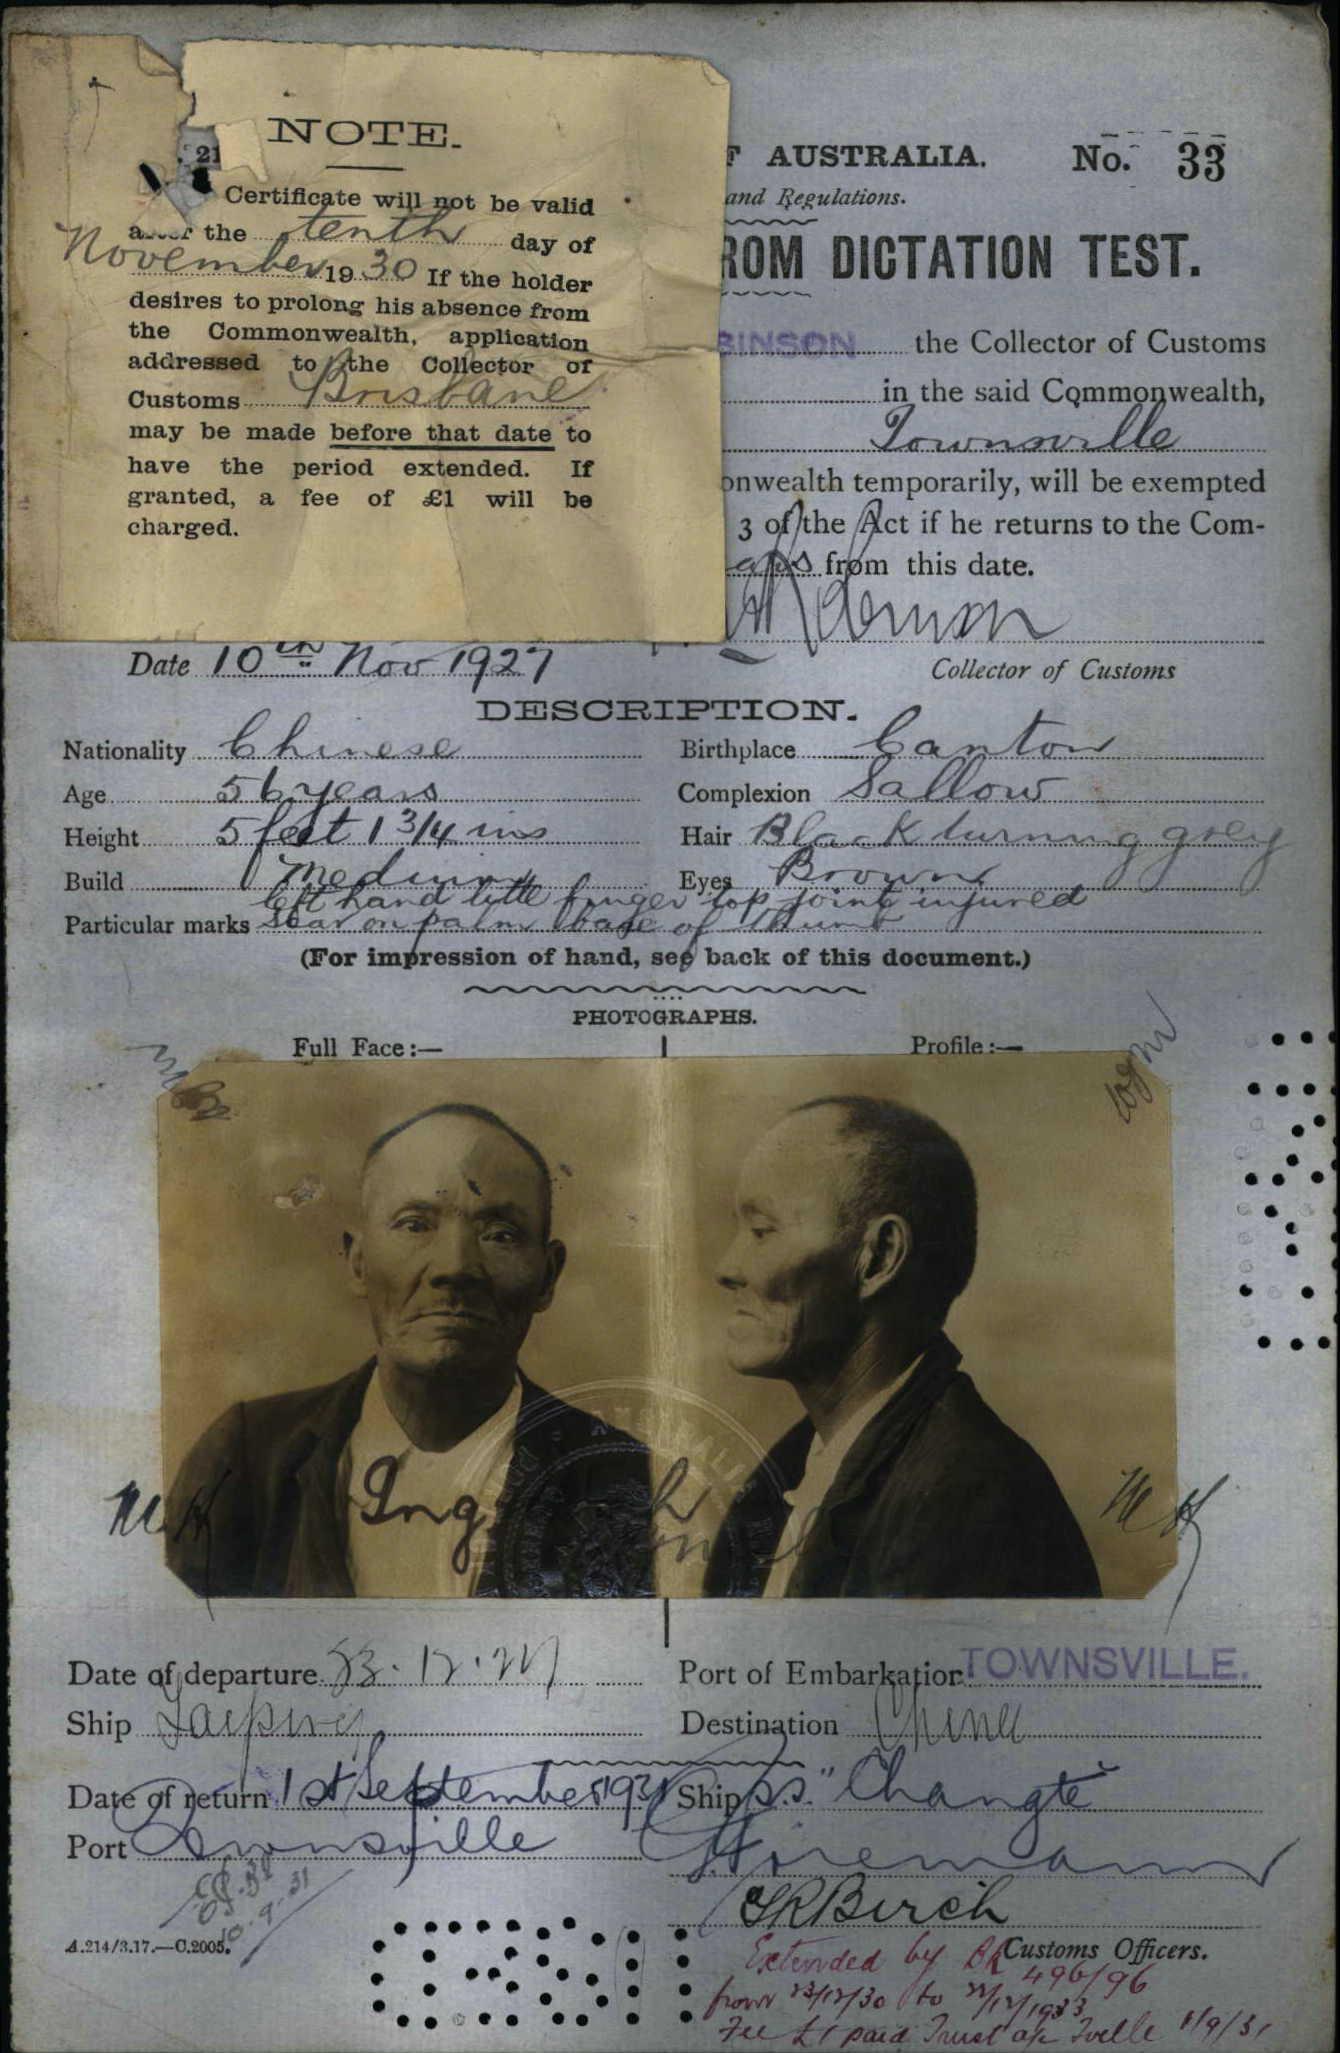 NOTE.
21
Certificate will not be valid
after the tenth day of
November 1930 If the holder
desires to prolong his absence from
the Commonwealth, application
addressed to the Collector of
Customs Brisbane
may be made before that date to
have the period extended. If
granted, a fee of £1 will be
charged.
F AUSTRALIA. No. 33
and Regulations.
ROM DICTATION TEST.
BINSON the Collector of Customs
in the said Commonwealth,
Townsville
onwealth temporarily, will be exempted
3 of the Act if he returns to the Com-
ars from this date.
Date 10th Nov 1927
Collector of Customs
DESCRIPTION.
Nationality Chinese Birthplace Canton
Age 56 years Complexion Sallow
Height 5 feet 1 3/4 ins Hair Black turning grey
Build Medium Eyes Brown
left hand little finger top joint injured
Particular marks scar on palm base of thumb
(For impression of hand, see back of this document.)
PHOTOGRAPHS.
Full Face:— Profile:—
M.H Ing M H
Date of departure 23.12.27 Port of Embarkation TOWNSVILLE.
Ship Taiping Destination China
Date of return 1st September 1931 Ship S.S. "Changte"
Port Townsville
10.9.31
Birch
A.214/3.17.—C.2005. Customs Officers.
Extended by BR 496/96
from 23/12/30 to 22/12/1933
Fee £1 paid Trust a/c Tville 1/9/31